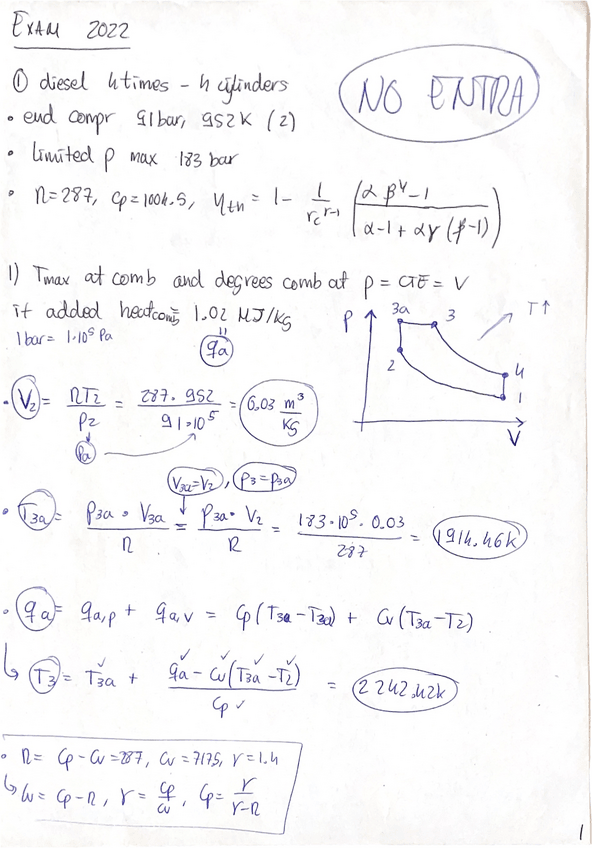 EXAM 2022
NO ENTRA
① diesel 4 times - 4 cylinders
• end compr 91bar, 952K (2)
• limited p max 183 bar
• R=287, Cp=1004.5, ηth = 1 - 1/rc^γ-1 (αβ^γ-1 / α-1+αγ(β-1))
1) Tmax at comb and degrees comb at p = CTE = V
if added heatcomb = 1.02 MJ/kg
1 bar = 1·10⁵ Pa
qa
P 3a 3 T↑
2 4
1
V
• V2 = RT2/P2 = 287·952/91·10⁵ = 0.03 m³/kg
Pa
V3a=V2, P3=P3a
• T3a = P3a·V3a/R = P3a·V2/R = 183·10⁵·0.03/287 = 1914.46K
• qa = qa,p + qa,v = Cp(T3a-T3a) + Cv(T3a-T2)
↳ T3 = T3a + qa-Cv(T3a-T2)/Cp = 2242.42K
• R = Cp-Cv=287, Cv=7175, γ=1.4
↳ Cv = Cp-R, γ = Cp/Cv, Cp = γ/γ-R
1